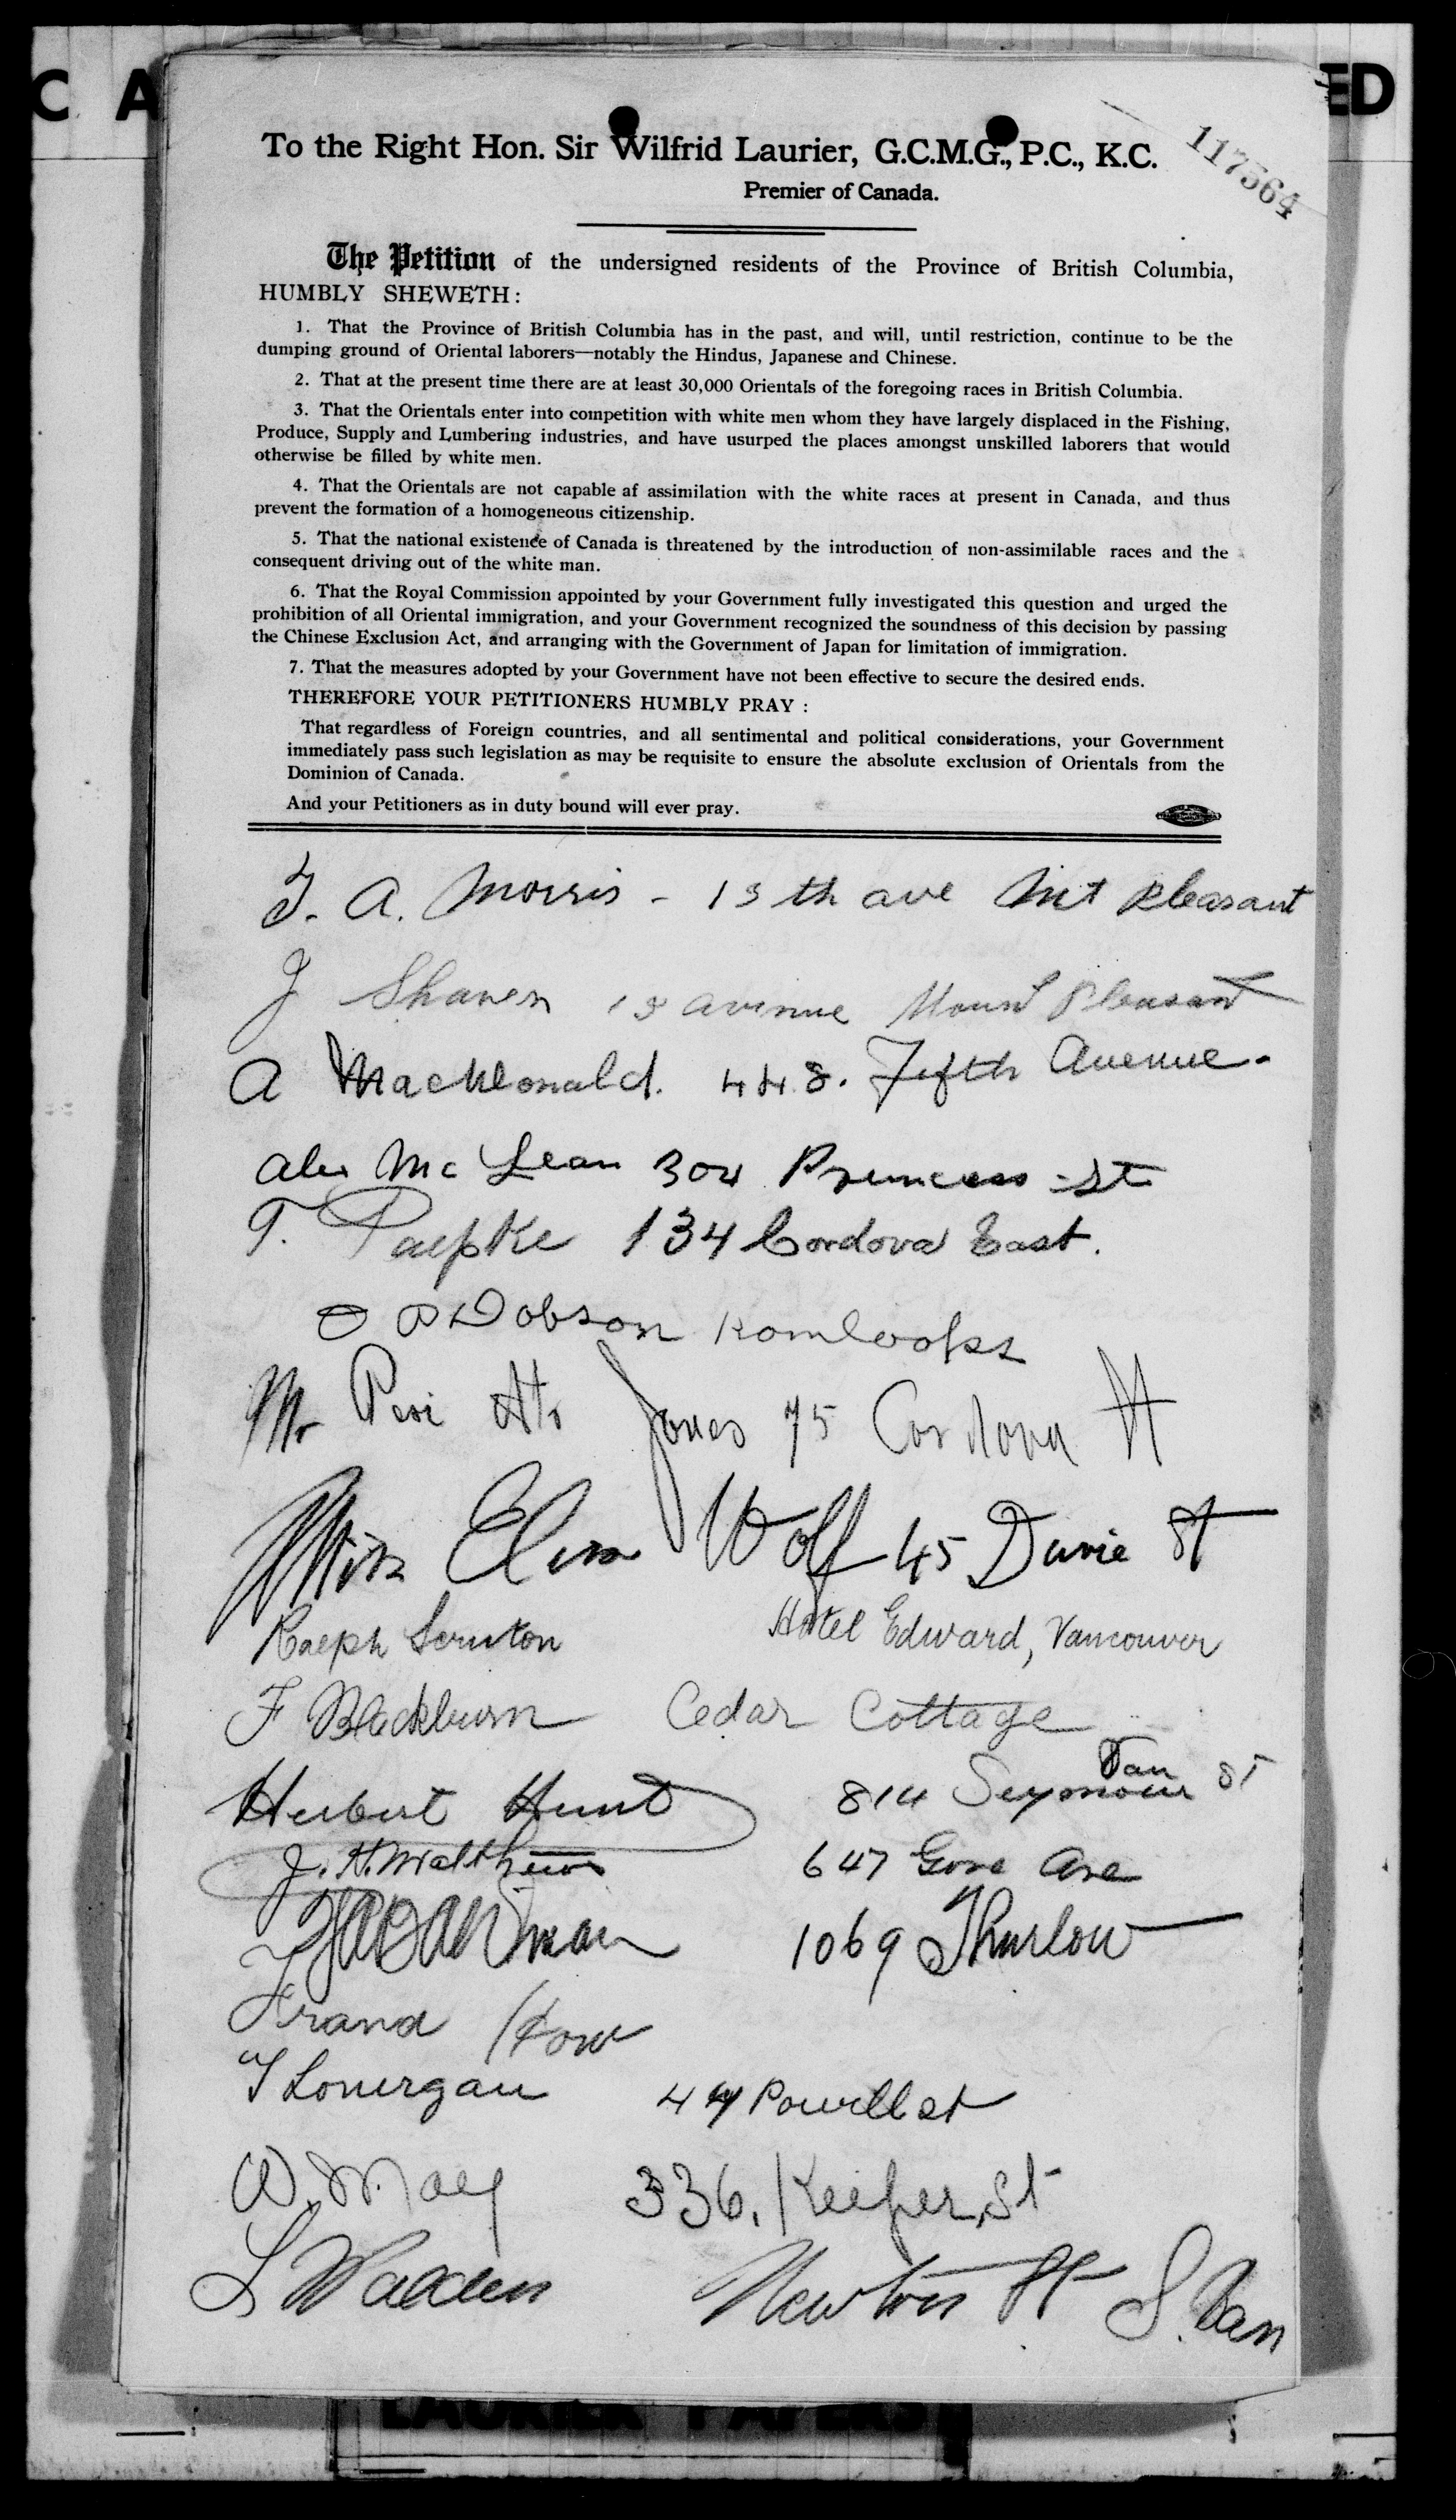 C A
ED
117564
To the Right Hon. Sir Wilfrid Laurier, G.C.M.G., P.C., K.C.
Premier of Canada.
The Petition of the undersigned residents of the Province of British Columbia,
HUMBLY SHEWETH:
1. That the Province of British Columbia has in the past, and will, until restriction, continue to be the
dumping ground of Oriental laborers—notably the Hindus, Japanese and Chinese.
2. That at the present time there are at least 30,000 Orientals of the foregoing races in British Columbia.
3. That the Orientals enter into competition with white men whom they have largely displaced in the Fishing,
Produce, Supply and Lumbering industries, and have usurped the places amongst unskilled laborers that would
otherwise be filled by white men.
4. That the Orientals are not capable af assimilation with the white races at present in Canada, and thus
prevent the formation of a homogeneous citizenship.
5. That the national existence of Canada is threatened by the introduction of non-assimilable races and the
consequent driving out of the white man.
6. That the Royal Commission appointed by your Government fully investigated this question and urged the
prohibition of all Oriental immigration, and your Government recognized the soundness of this decision by passing
the Chinese Exclusion Act, and arranging with the Government of Japan for limitation of immigration.
7. That the measures adopted by your Government have not been effective to secure the desired ends.
THEREFORE YOUR PETITIONERS HUMBLY PRAY :
That regardless of Foreign countries, and all sentimental and political considerations, your Government
immediately pass such legislation as may be requisite to ensure the absolute exclusion of Orientals from the
Dominion of Canada.
And your Petitioners as in duty bound will ever pray.
A. Morris - 13th ave Mt Pleasant
J 13 avinue Mount Pleasant
A MacDonald. 448. Fifth Avenue.
Alex McLean 304 Princess St
T. Paepke 134 Cordova East.
Dobson Kamloops
Mr Jones 75 Cordova St
Miss Wolf 45 Davie St
Ralph Scruton Hotel Edward, Vancouver
F Blackburn Cedar Cottage
Van
Herbert Hunt 814 Seymour St
J. H. Matthews 647 Gore Ave
1069 Thurlow
T Lonergan 44 Powell st
W. May 336. Keefer, St
L Walden Newton St S. Van
LAURIER PAPERS